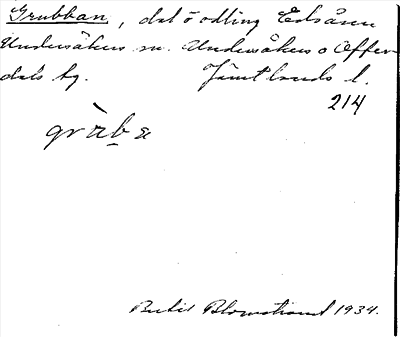 Grubban, del ö odling Edsåsen
Undersåkers sn. Undersåkers o Offer-
dals tg. Jämtlands l.
214
Bertil Blomstrand 1934.